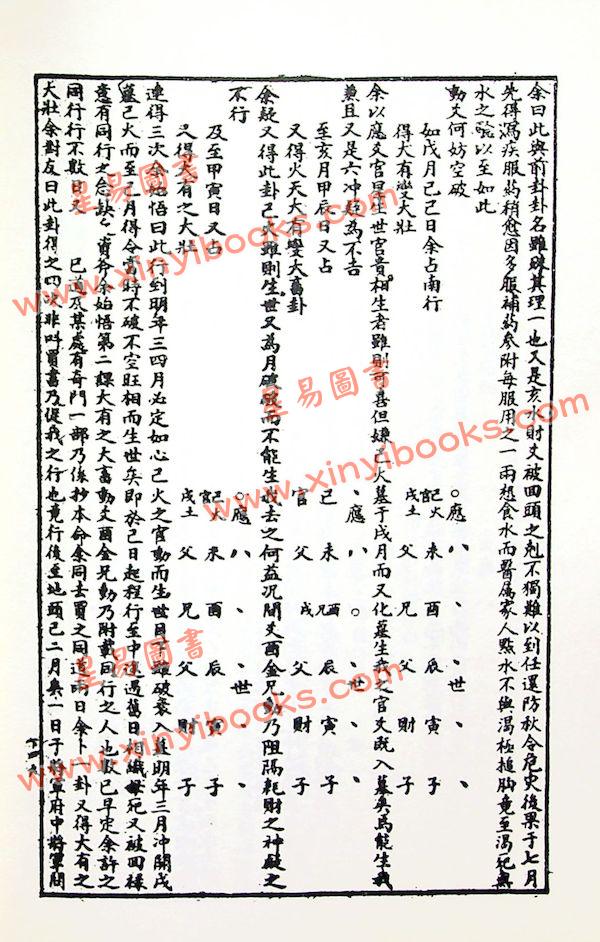 余曰此與前卦卦名雖殊其理一也又是亥水財爻被回頭之剋不獨難以到任還防秋令危災後果于七月
先得瀉疾服药稍愈因多服補药參附每服用之一兩想食水而醫属家人點水不與渴極搥胸竟至渴死與
水之驗以至如此
動爻何妨空破
如戌月己巳日余占南行
得大有變大壯
官巳火 未 酉 辰 寅 子
戌土 父 兄 父 財 子
應 世
余以應爻官星生世官貴相生者雖則可喜但嫌巳火墓于戌月而又化墓生我之官爻既入墓矣焉能生我
兼且又是六冲趋為不吉
至亥月甲辰日又占
又得火天大有變大畜卦
巳 未 酉 辰 寅 子
官 父 兄 戌 父 財 子
應 世
余疑又得此卦巳火雖則生世又為月破破而不能生我去之何益况間爻酉金兄動乃阻隔耗財之神疑之
不行
及至甲寅日又占
又得大有之大壯
官巳火 未 酉 辰 寅 子
戌土 父 兄 父 財 子
應 世
連得三次余始悟曰此行到明年三四月必定如心巳火之官動而生世目下雖破衰入墓明年三月冲開戌
墓巳火而至巳月得令當時不破不空旺相而生世矣即於己日起程行至中途遇舊日相識
意有同行之念缺乏資斧余始悟第二課大有之大畜動爻酉金兄動乃附載同行之人也數已早定余許之
同行行不數日又 已道及某處有奇門一部乃係抄本命余同去買之同道兩日余卜一卦又得大有之
大壯余對友曰此卦得之四次非叫買書乃促我之行也竟行後至地頭已二月矣一日于將軍府中將軍問
星易圖書
www.xinyibooks.com
星易圖書
www.xinyibooks.com
星易圖書
www.xinyibooks.com